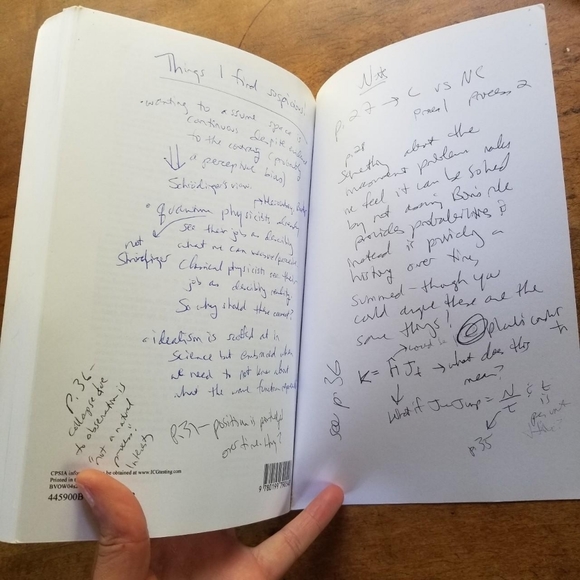 Things I find suspicious!
• wanting to assume space is
continuous despite
to the contrary (probably
a perceptual bias)
Schrödinger's view.
• quantum physicists
see their job as describing
not
what we can
Classical physicists see their
job as describing reality.
So why should they connect?
• idealism is scoffed at in
Science but embraced when
we need to not know about
what the wave function
p. 36 –
collapse due
to observation is
"not a natural
process".
p. 31 – position is
over time
CPSIA
be obtained at www.ICGtesting.com
Printed in
BVOW04
445900B
9 780199
Notes
p. 27 → C vs NC
process 1 process 2
p. 28
Something about the
measurement problem makes
me feel it can be solved
by not assuming Born's rule
provides probabilities &
instead is providing a
history over time,
summed – though you
could argue these are the
same things!
see p. 36
K = → what does this
mean?
What if Jump = N
t
p. 35